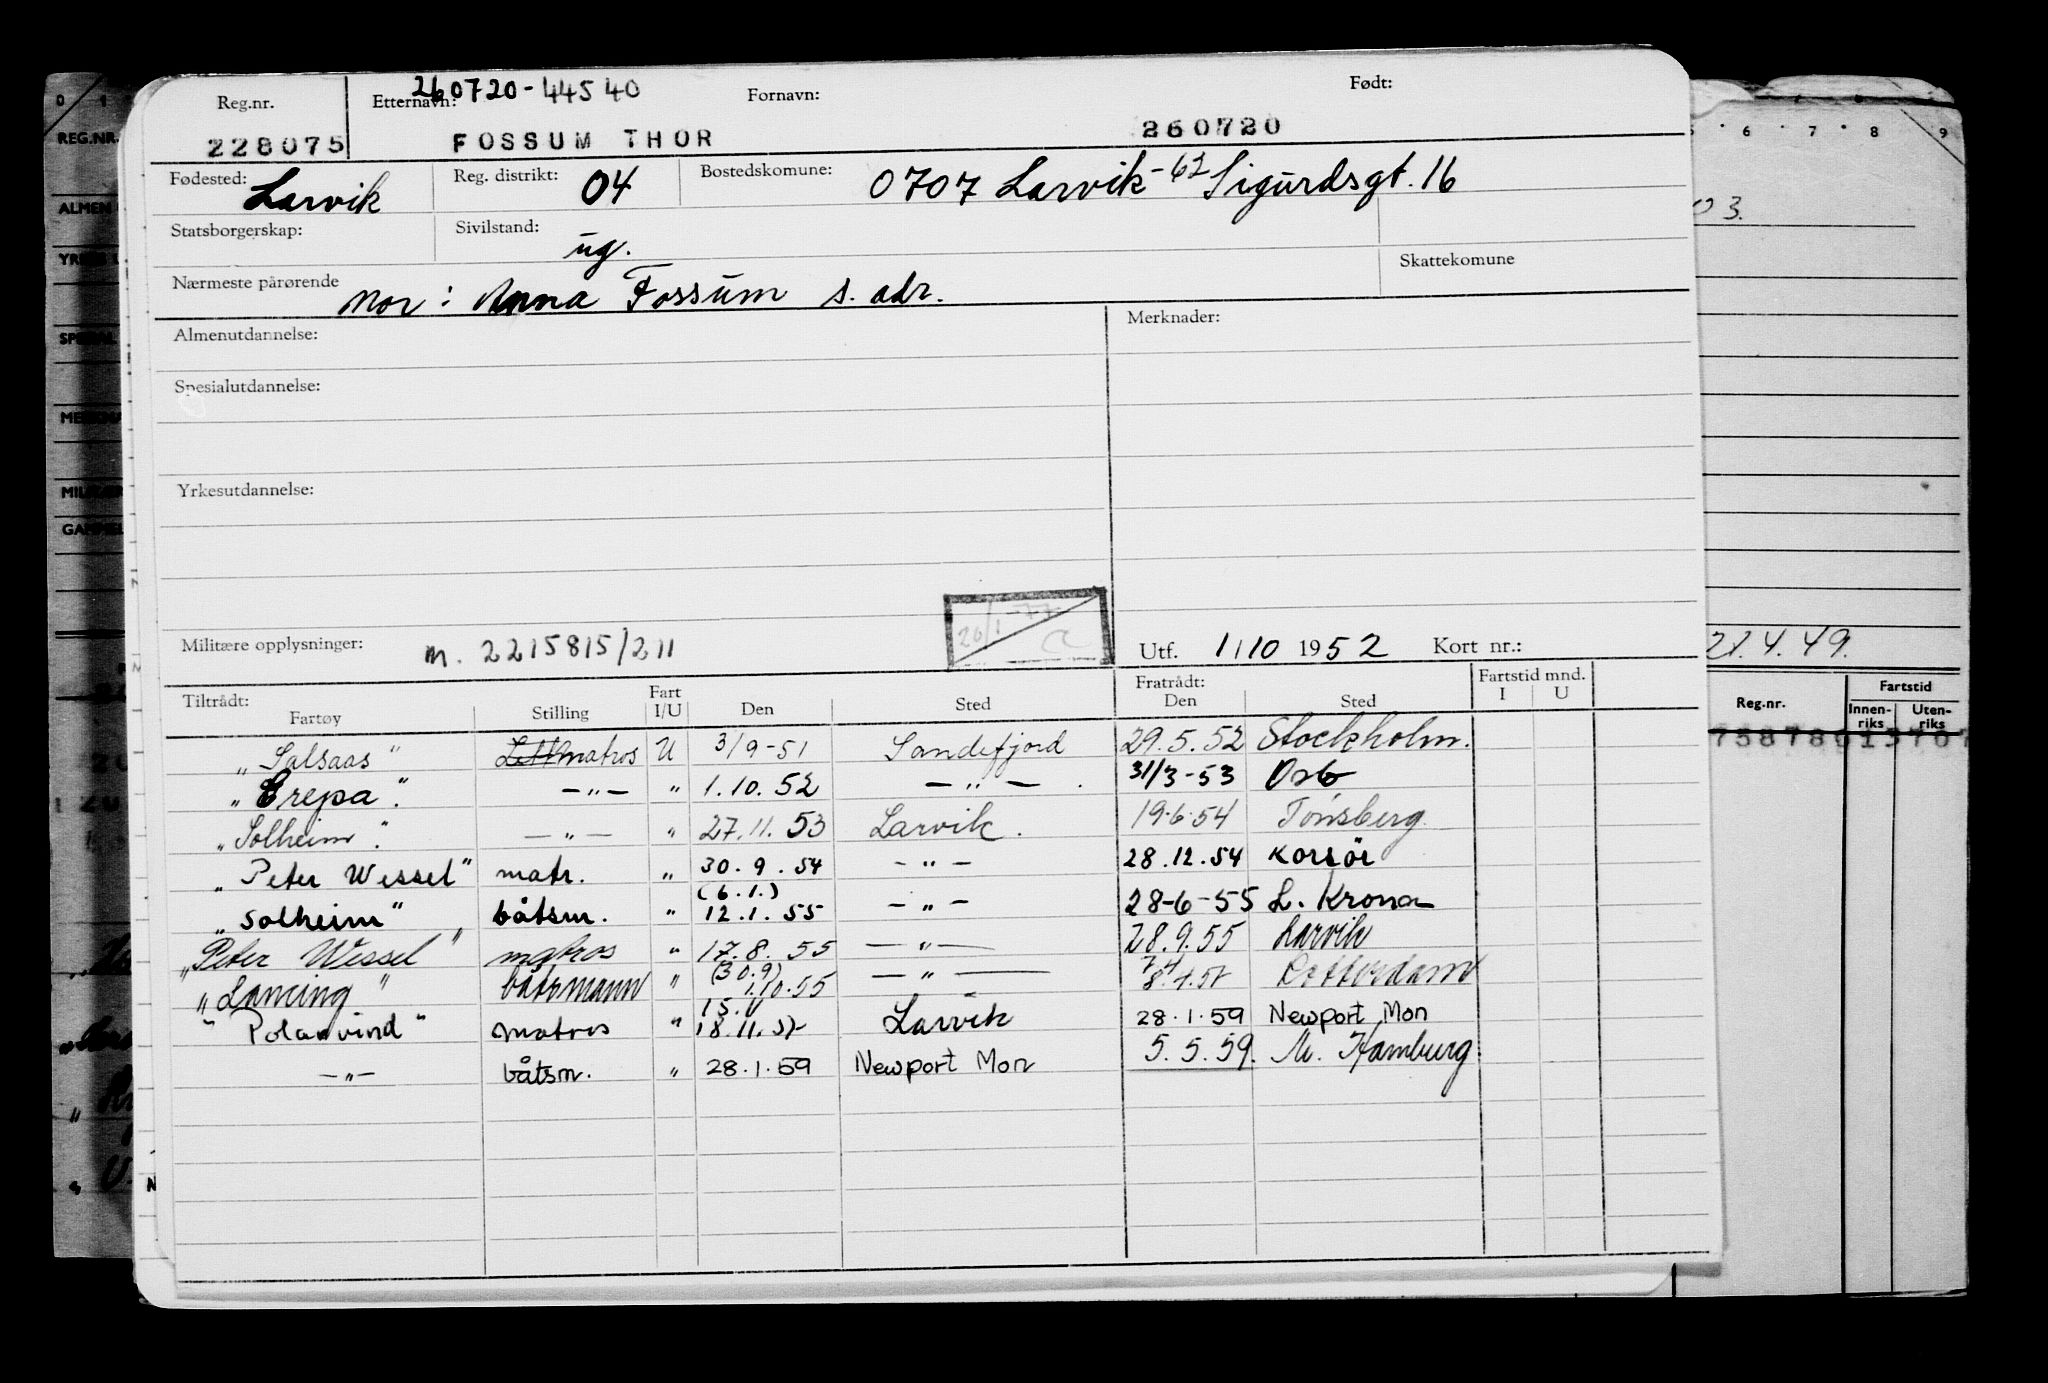 260720-44540
Reg.nr. Etternavn: Fornavn: Født:
228075 FOSSUM THOR 260720
Fødested: Larvik Reg. distrikt: 04 Bostedskomune: 0707 Larvik - Sigurdsgt. 16
Statsborgerskap: Sivilstand: ug.
Nærmeste pårørende mor: Anna Fossum s. adr. Skattekomune
Almenutdannelse: Merknader:
Spesialutdannelse:
Yrkesutdannelse:
26/1-77
Militære opplysninger: m. 2215815/211 Utf. 1/10 1952 Kort nr.:
Tiltrådt: Fratrådt: Fartstid mnd.
Fartøy Stilling Fart I/U Den Sted Den Sted I U
"Salsaas" Lettmatros U 3/9-51 Sandefjord 29.5.52 Stockholm.
"Crepa". -"- " 1.10.52 -"- . 31/3-53 Oslo
"Solheim". -"- " 27.11.53 Larvik. 19.6.54 Tønsberg.
"Peter Wessel" matr. " 30.9.54 -"- 28.12.54 Korsör
(6.1.)
"Solheim" båtsm. " 12.1.55 -"- 28-6-55 L. Krona
"Peter Wessel" matros " 17.8.55 -"- 28.9.55 Larvik
(30.9)
"Lancing" båtsmann " 1.10.55 -"- Rotterdam
"Polarvind" matros " 18.11. Larvik 28.1.59 Newport Mon
-"- båtsm. " 28.1.59 Newport Mon 5.5.59. Hamburg.
0 1
REG.NR.
6 7 8 9
03.
21.4.49.
Reg.nr. Fartstid
Innen-riks Uten-riks